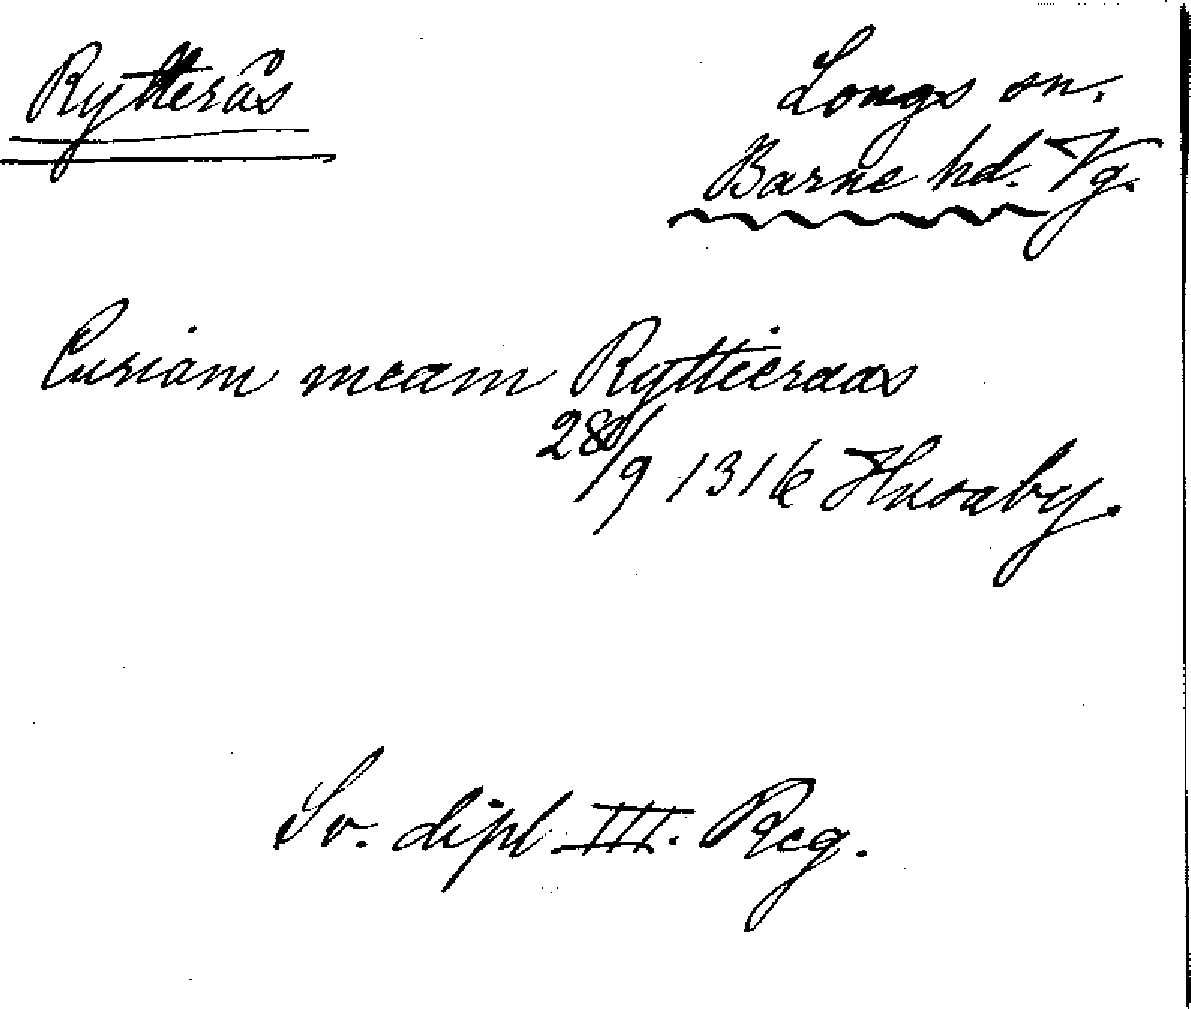 Rytterås
Longs sn.
Barne hd. Vg.
Curiam meam Ryttieraas
28/9 1316 Husaby.
Sv. dipl. III. Reg.